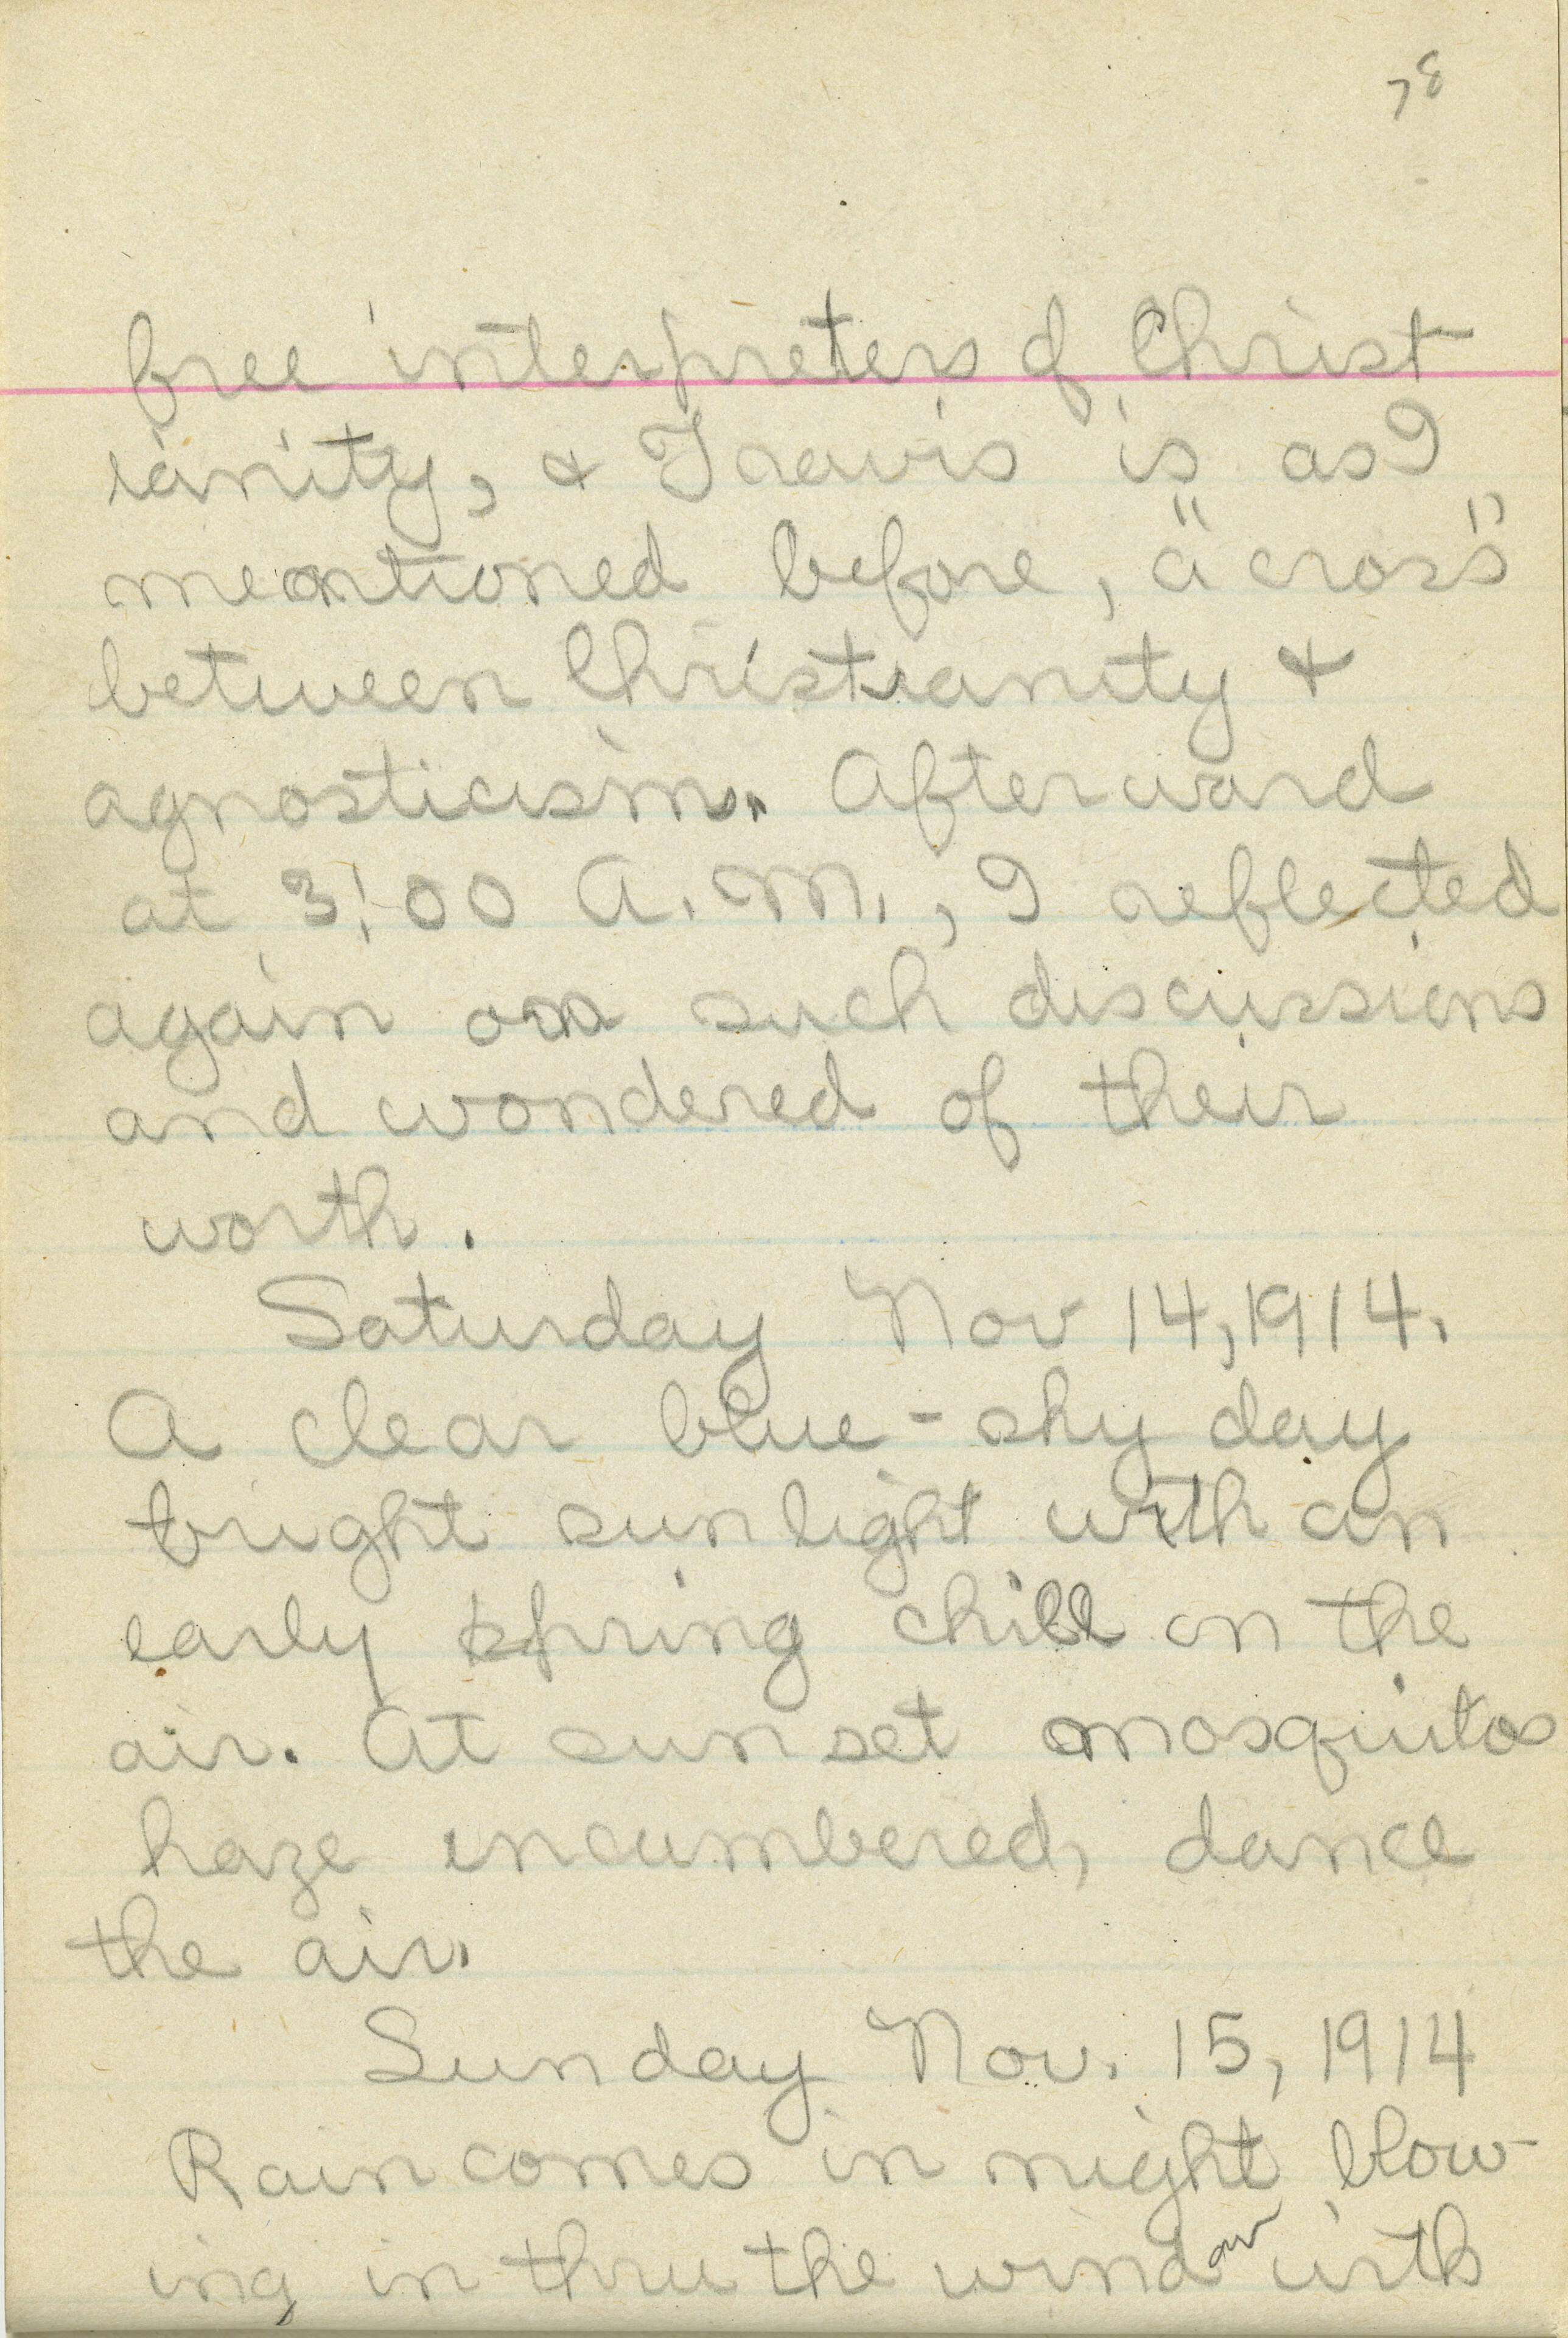 78
free interpreters of Christ
ianity, & Travis is as I
mentioned before, "a cross"
between Christianity &
agnosticism. Afterward
at 3:00 A.M., I reflected
again on such discussions
and wondered of their
worth.
Saturday Nov 14, 1914.
A clear blue-sky day
bright sunlight with an
early spring chill on the
air. At sunset mosquitos
haze incumbered, dance
the air.
Sunday Nov. 15, 1914
Rain comes in night blow-
ing in thru the window with